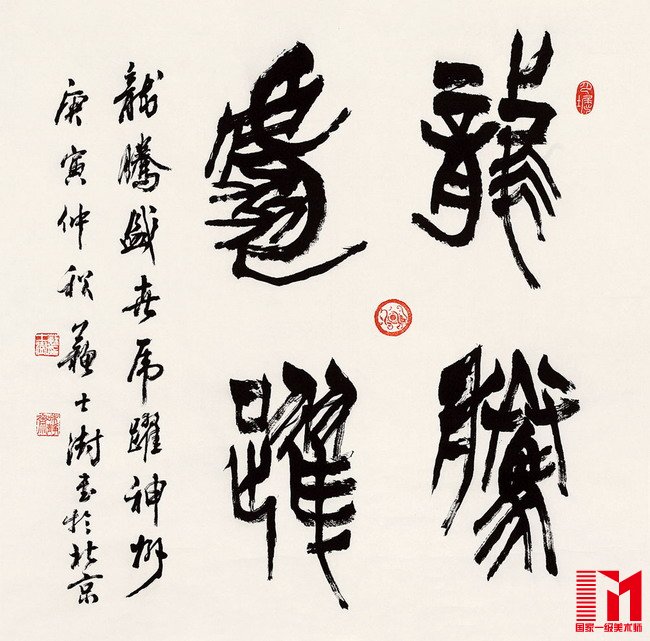 龍騰
虎躍
龍騰盛世虎躍神州
庚寅仲秋蘇士澍書於北京
国家一级美术师